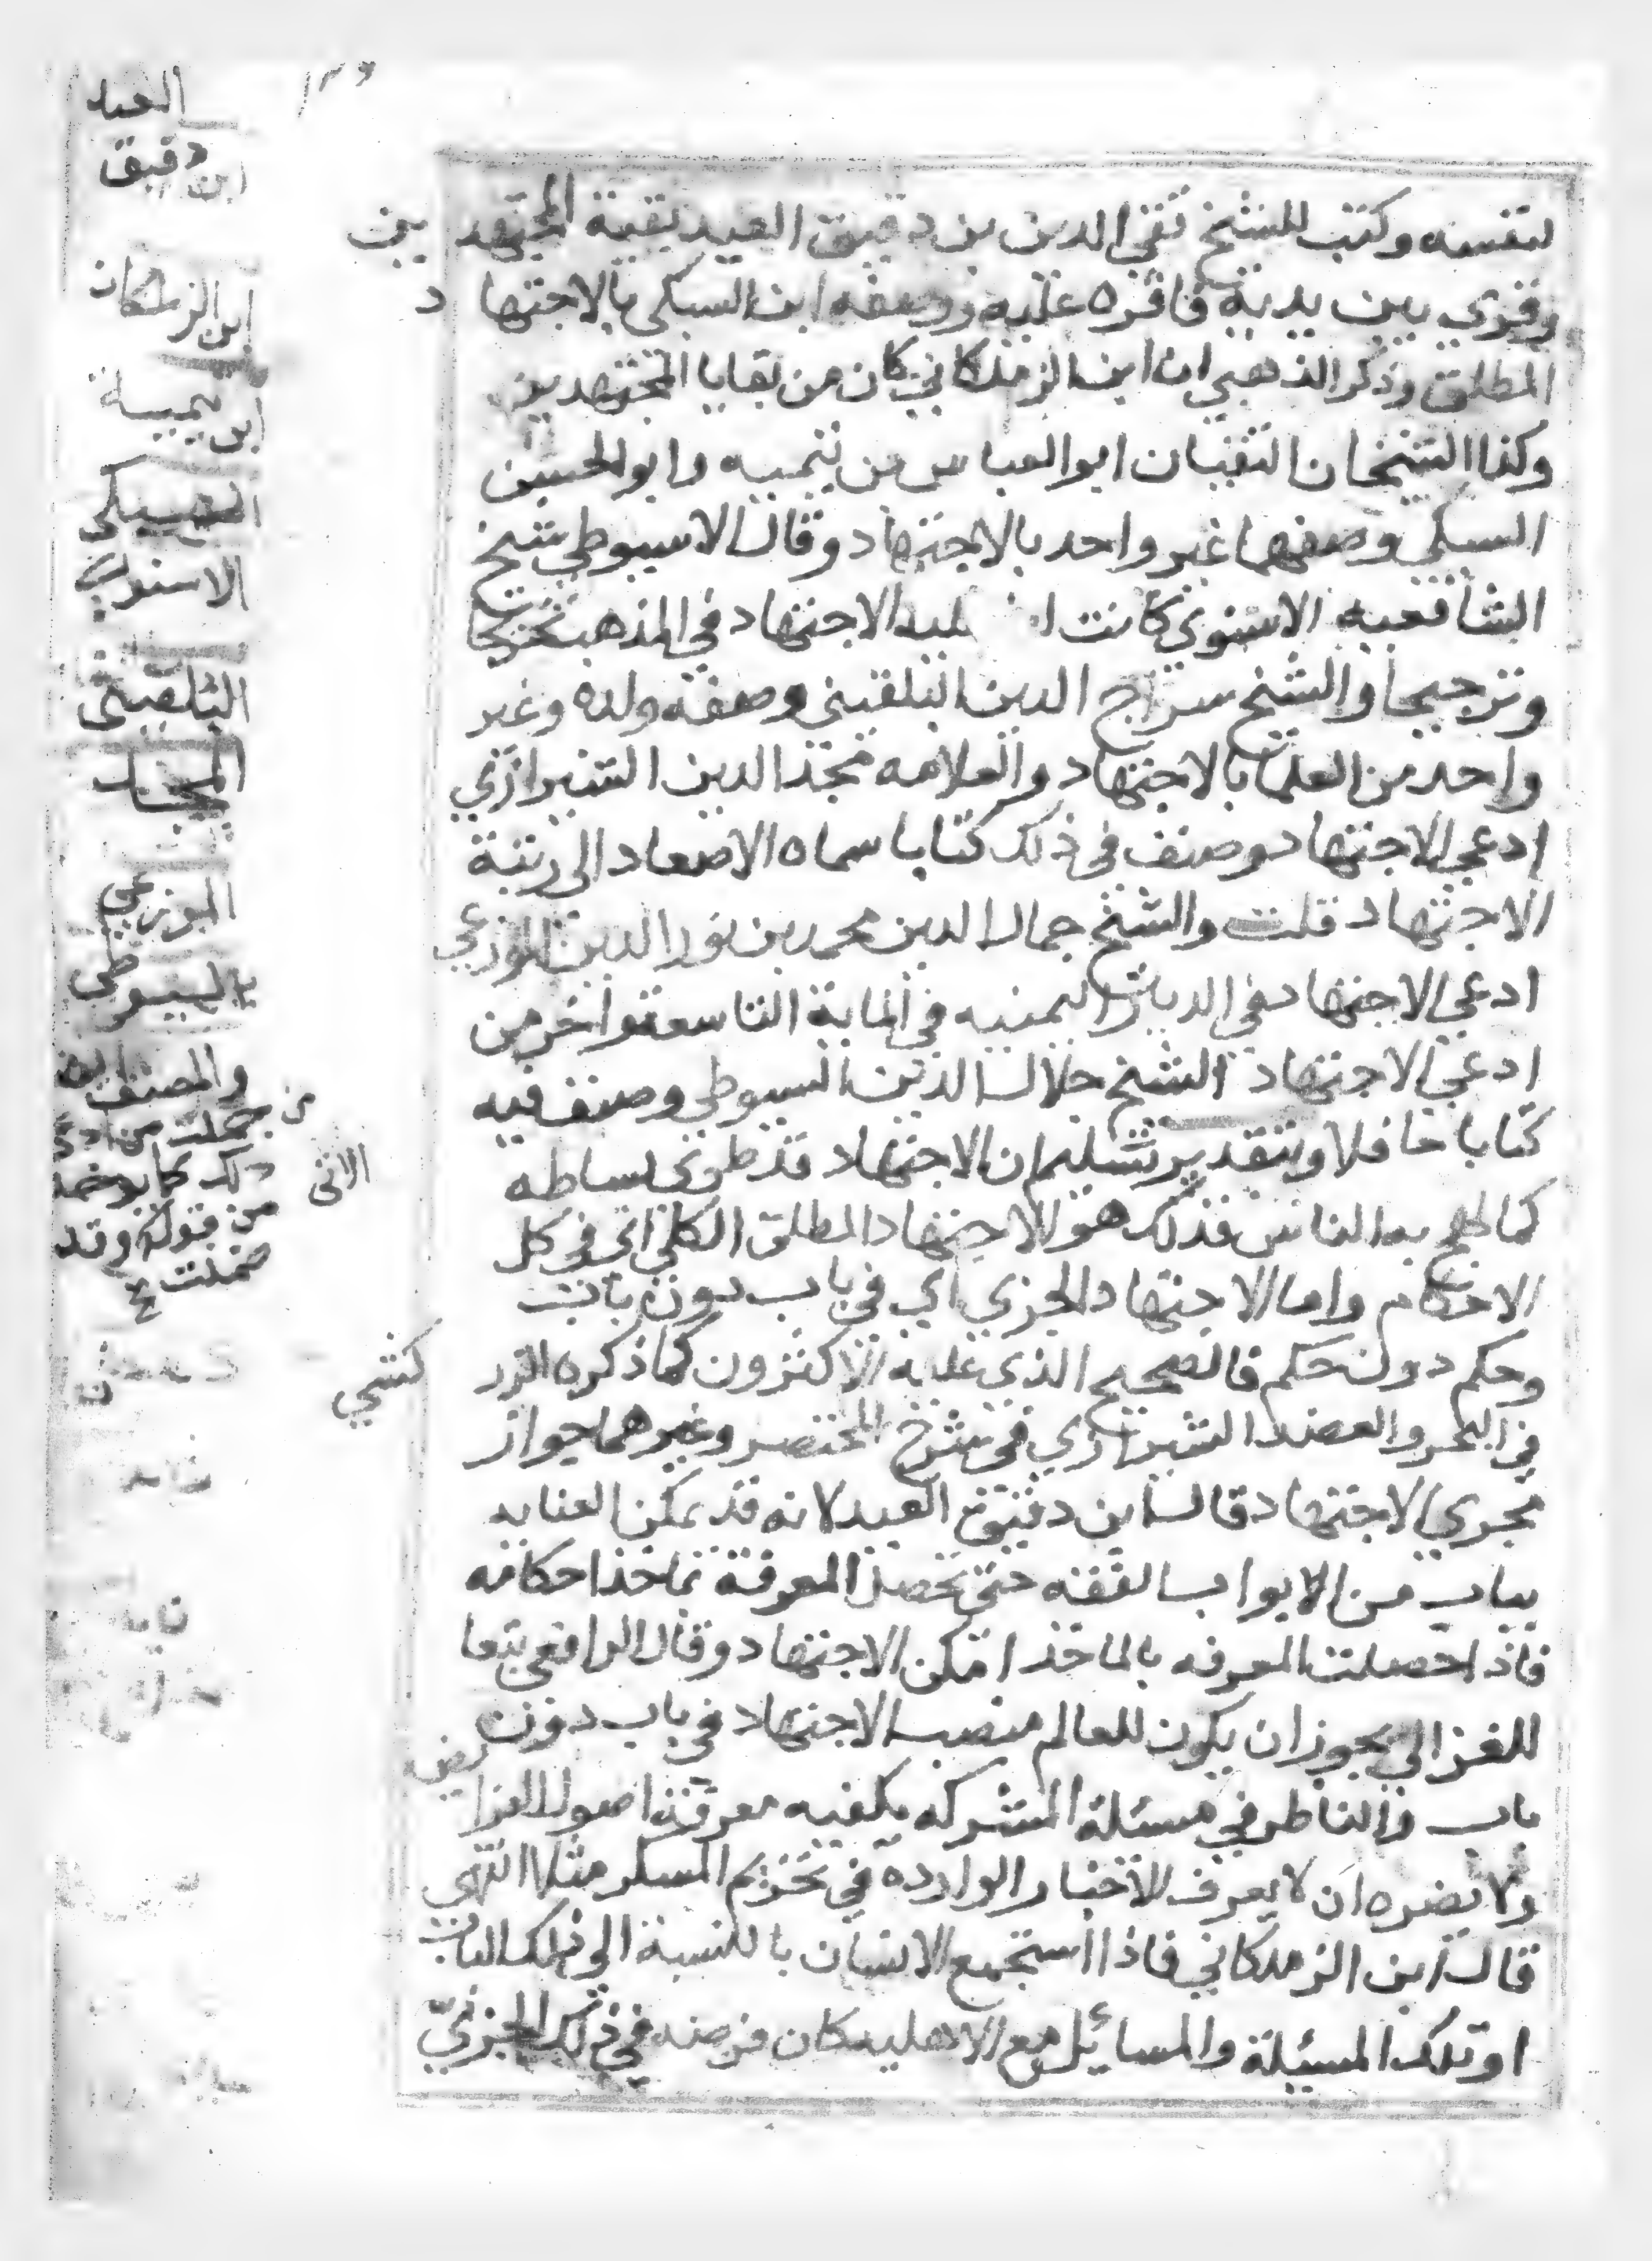 لنفسه وكتب للشيخ تقي الدين بن دقيق العيد بقية المجتهدين
وقري بين يديه فاقره عليه ووصفه ابن السبكي بالاجتهاد
المطلق وذكر الذهبي ان ابن الزملكاني كان من بقايا المجتهدين
وكذا الشيخان التقيان ابو العباس بن تيميه وابو الحسن
السبكي وصفهما غير واحد بالاجتهاد وقال الاسيوطي شيخ
الشافعيه الاسنوي كانت له الاجتهاد في المذهب تخريجا
وترجيحا والشيخ سراج الدين البلقيني وصفه ولده وغير
واحد من العلما بالاجتهاد والعلامه مجد الدين الشيرازي
ادعي الاجتهاد وصنف في ذلك كتابا سماه الاصعاد الى رتبة
الاجتهاد قلت والشيخ جمال الدين محمد بن نور الدين الموزعي
ادعي الاجتهاد في الديار اليمنيه في الماية التاسعة واخر من
ادعي الاجتهاد الشيخ جلال الدين السيوطي وصنف فيه
كتابا حافلا وبتقدير تسليم ان الاجتهاد قد طوى بساطه
كما لهج به الناس فذلك هو الاجتهاد المطلق الكلي اى في كل
الاحكام واما الاجتهاد الجزي اي في باب دون باب
وحكم دون حكم فالصحيح الذي عليه الاكثرون كما ذكره الزركشي
في البحر والعضد الشيرازي في شرح المختصر وغيرهما جواز
تجزي الاجتهاد قال ابن دقيق العيد لانه قد يمكن العنايه
بباب من الابواب الفقه حتى تحصل المعرفة بماخذ احكامه
فاذا حصلت المعرفه بالماخذ امكن الاجتهاد وقال الرافعي تبعا
للغزالي يجوز ان يكون للعالم منصب الاجتهاد في باب دون
باب والناظر في مسئلة المشركه يكفيه معرفة اصول الفرايض
ولا يضره ان لا يعرف الاخبار الوارده في تحريم المسكر مثلا انتهى
قال ابن الزملكاني فاذا استجمع الانسان بالنسبة الى ذلك الباب
او تلك المسئلة والمسائل مع الاهليه كان فرضه في ذلك الجزئي
العيد
ابن دقيق
ابن الزملكان
ابن تيمية
السبكى
الاسنوي
البلقينى
المجد
الموزعي
السيوطى
والمصنف
من جملت من ادعى
ذلك كما يوخذ
من قوله وقد